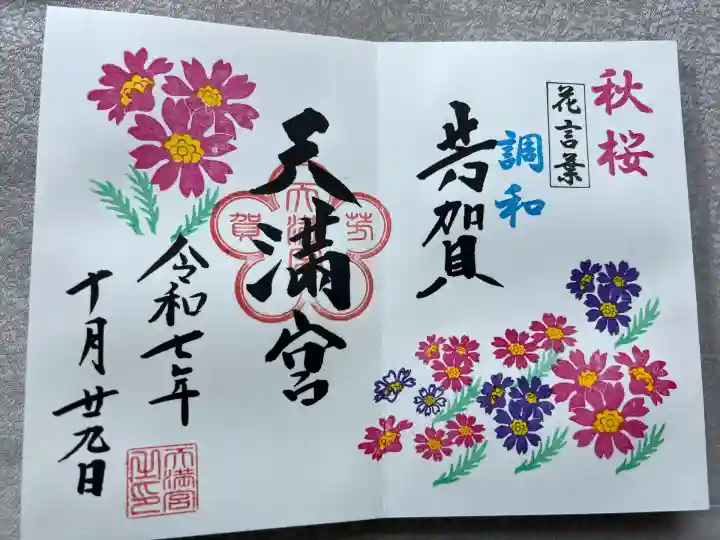 秋桜
花言葉
調和
芳賀
天満宮
芳
賀
令和七年
十月廿九日
天満宮
之印